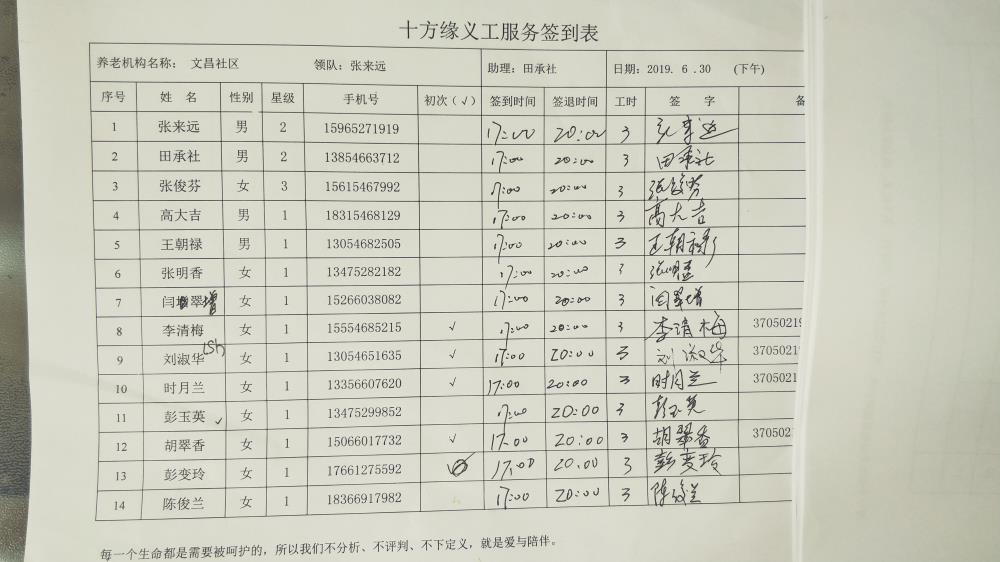 十方缘义工服务签到表
养老机构名称： 文昌社区 领队：张来远 助理：田承社 日期：2019. 6 .30 (下午)
序号 姓 名 性别 星级 手机号 初次（√） 签到时间 签退时间 工时 签 字 备
1 张来远 男 2 15965271919 17:00 20:00 3 张来远
2 田承社 男 2 13854663712 17:00 20:00 3 田承社
3 张俊芬 女 3 15615467992 17:00 20:00 3 张俊芬
4 高大吉 男 1 18315468129 17:00 20:00 3 高大吉
5 王朝禄 男 1 13054682505 17:00 20:00 3 王朝禄
6 张明香 女 1 13475282182 17:00 20:00 3
7 闫翠增 女 1 15266038082 17:00 20:00 3 闫翠增
8 李清梅 女 1 15554685215 √ 17:00 20:00 3 李清梅 37050219
9 刘淑华 (Sh) 女 1 13054651635 √ 17:00 20:00 3 刘淑华 3705021
10 时月兰 女 1 13356607620 √ 17:00 20:00 3 时月兰 3705021
11 彭玉英 √ 女 1 13475299852 17:00 20:00 3 彭玉英
12 胡翠香 女 1 15066017732 √ 17:00 20:00 3 胡翠香 370502
13 彭变玲 女 1 17661275592 17:00 20:00 3 彭变玲
14 陈俊兰 女 1 18366917982 17:00 20:00 3 陈俊兰
每一个生命都是需要被呵护的，所以我们不分析、不评判、不下定义，就是爱与陪伴。